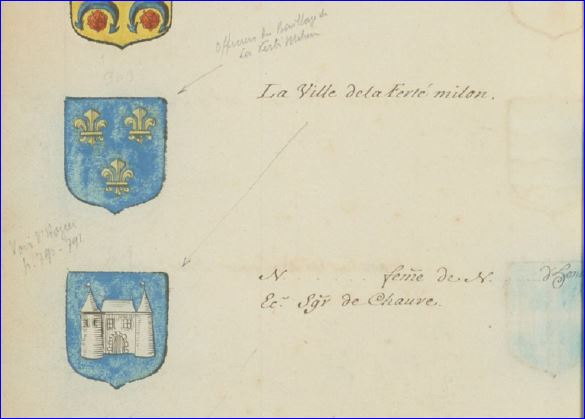 Officiers du Bailliage de
La Ferté Milon
303
La Ville de la Ferté milon.
Voir d'Hozier
p. 790-791
N . . . . . . . feme de N. . . . .
Ec.r Sgr de Chaure.